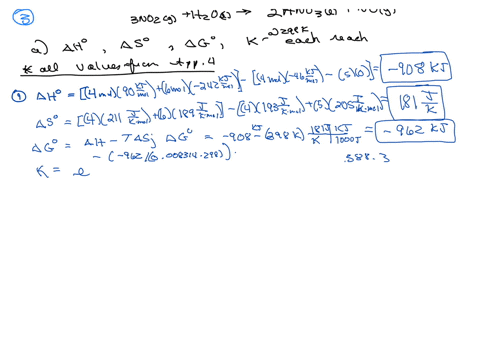 ③
3NO2(g) + H2O(l) → 2HNO3(l) + NO(g)
a) ΔH°, ΔS°, ΔG°, K @ 298K each reach
* all values from App. 4
① ΔH° = [(4 mol)(90 KJ/mol) + (6 mol)(-242 KJ/mol)] - [(4 mol)(-46 KJ/mol) - (5)(0)] = -908 KJ
ΔS° = [(4)(211 J/K·mol) + (6)(189 J/K·mol)] - [(4)(193 J/K·mol) + (5)(205 J/K·mol)] = 181 J/K
ΔG° = ΔH - TΔS; ΔG° = -908 KJ - (298K) 181J/K KJ/1000J = -962 KJ
K = e - (-962/(0.008314·298)) 588.3